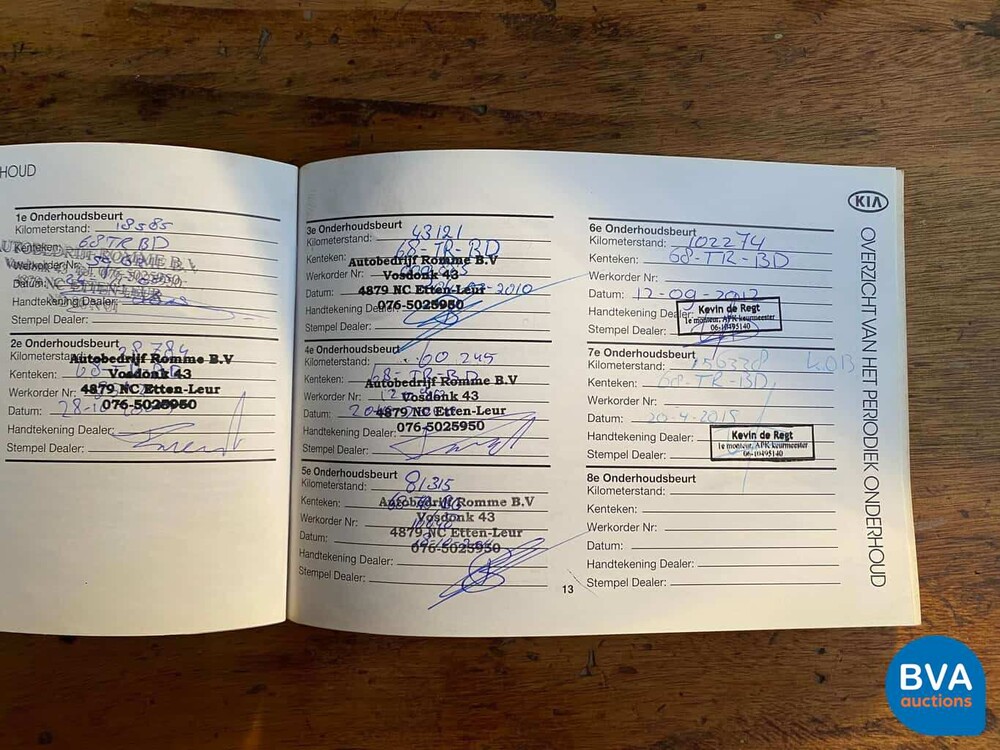 HOUD
1e Onderhoudsbeurt
Kilometerstand: 18585
Kenteken: 68 TR BD
AUTOBEDRIJF ROMME B.V.
Werkorder Nr:
Datum:
4879 NC ETTEN-LEUR
Handtekening Dealer:
Stempel Dealer:
2e Onderhoudsbeurt
Kilometerstand: 28784
Autobedrijf Romme B.V
Kenteken:
Vosdonk 43
Werkorder Nr:
4879 NC Etten-Leur
Datum:
076-5025950
Handtekening Dealer:
Stempel Dealer:
3e Onderhoudsbeurt
Kilometerstand: 43121
Kenteken: 68-TR-BD
Autobedrijf Romme B.V
Werkorder Nr:
Vosdonk 43
Datum: 2010
4879 NC Etten-Leur
Handtekening Dealer:
076-5025950
Stempel Dealer:
4e Onderhoudsbeurt
Kilometerstand: 60 245
Kenteken: 68-TR-BD
Autobedrijf Romme B.V
Werkorder Nr:
Vosdonk 43
Datum:
4879 NC Etten-Leur
Handtekening Dealer:
076-5025950
Stempel Dealer:
5e Onderhoudsbeurt
Kilometerstand: 81315
Kenteken:
Autobedrijf Romme B.V
Werkorder Nr:
Vosdonk 43
Datum:
4879 NC Etten-Leur
076-5025950
Handtekening Dealer:
Stempel Dealer:
13
KIA
OVERZICHT VAN HET PERIODIEK ONDERHOUD
6e Onderhoudsbeurt
Kilometerstand: 102274
Kenteken: 68-TR-BD
Werkorder Nr:
Datum: 12-09-2012
Handtekening Dealer:
Kevin de Regt
1e monteur, APK-keurmeester
06-10495140
Stempel Dealer:
7e Onderhoudsbeurt
Kilometerstand: 156328
Kenteken: 68-TR-BD
Werkorder Nr:
Datum: 20-4-2015
Handtekening Dealer:
Kevin de Regt
1e monteur, APK-keurmeester
06-10495140
Stempel Dealer:
8e Onderhoudsbeurt
Kilometerstand:
Kenteken:
Werkorder Nr:
Datum:
Handtekening Dealer:
Stempel Dealer:
BVA
auctions